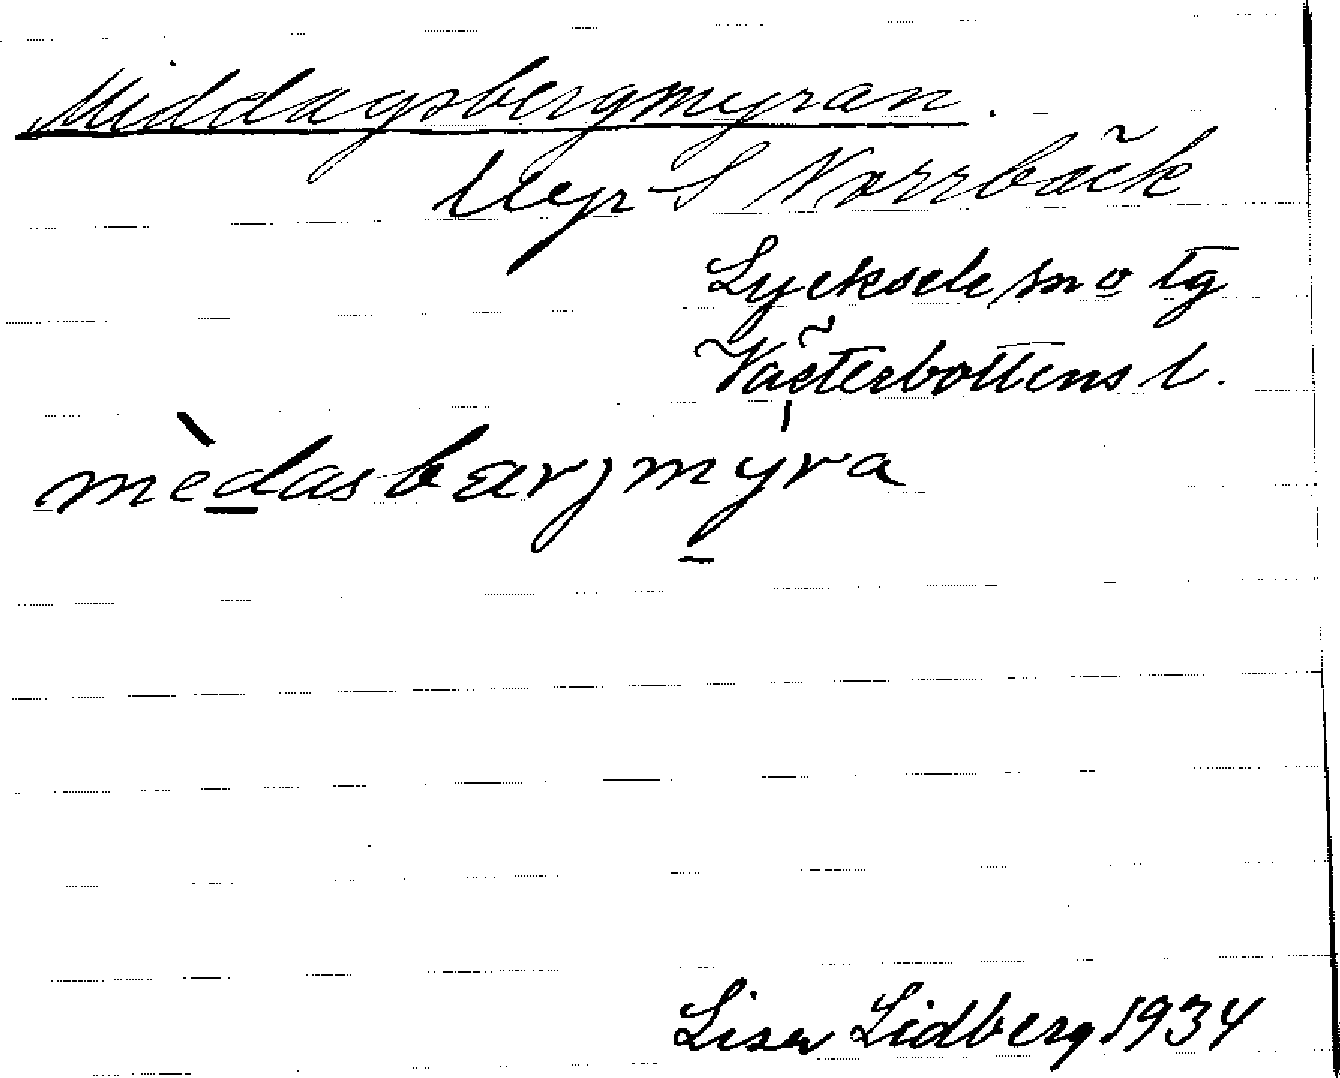 Middagsbergmyran.
Myr S Norrbäck
Lycksele sn o tg
Västerbottens l.
mèdasbærjmyra
Lisa Lidberg 1934